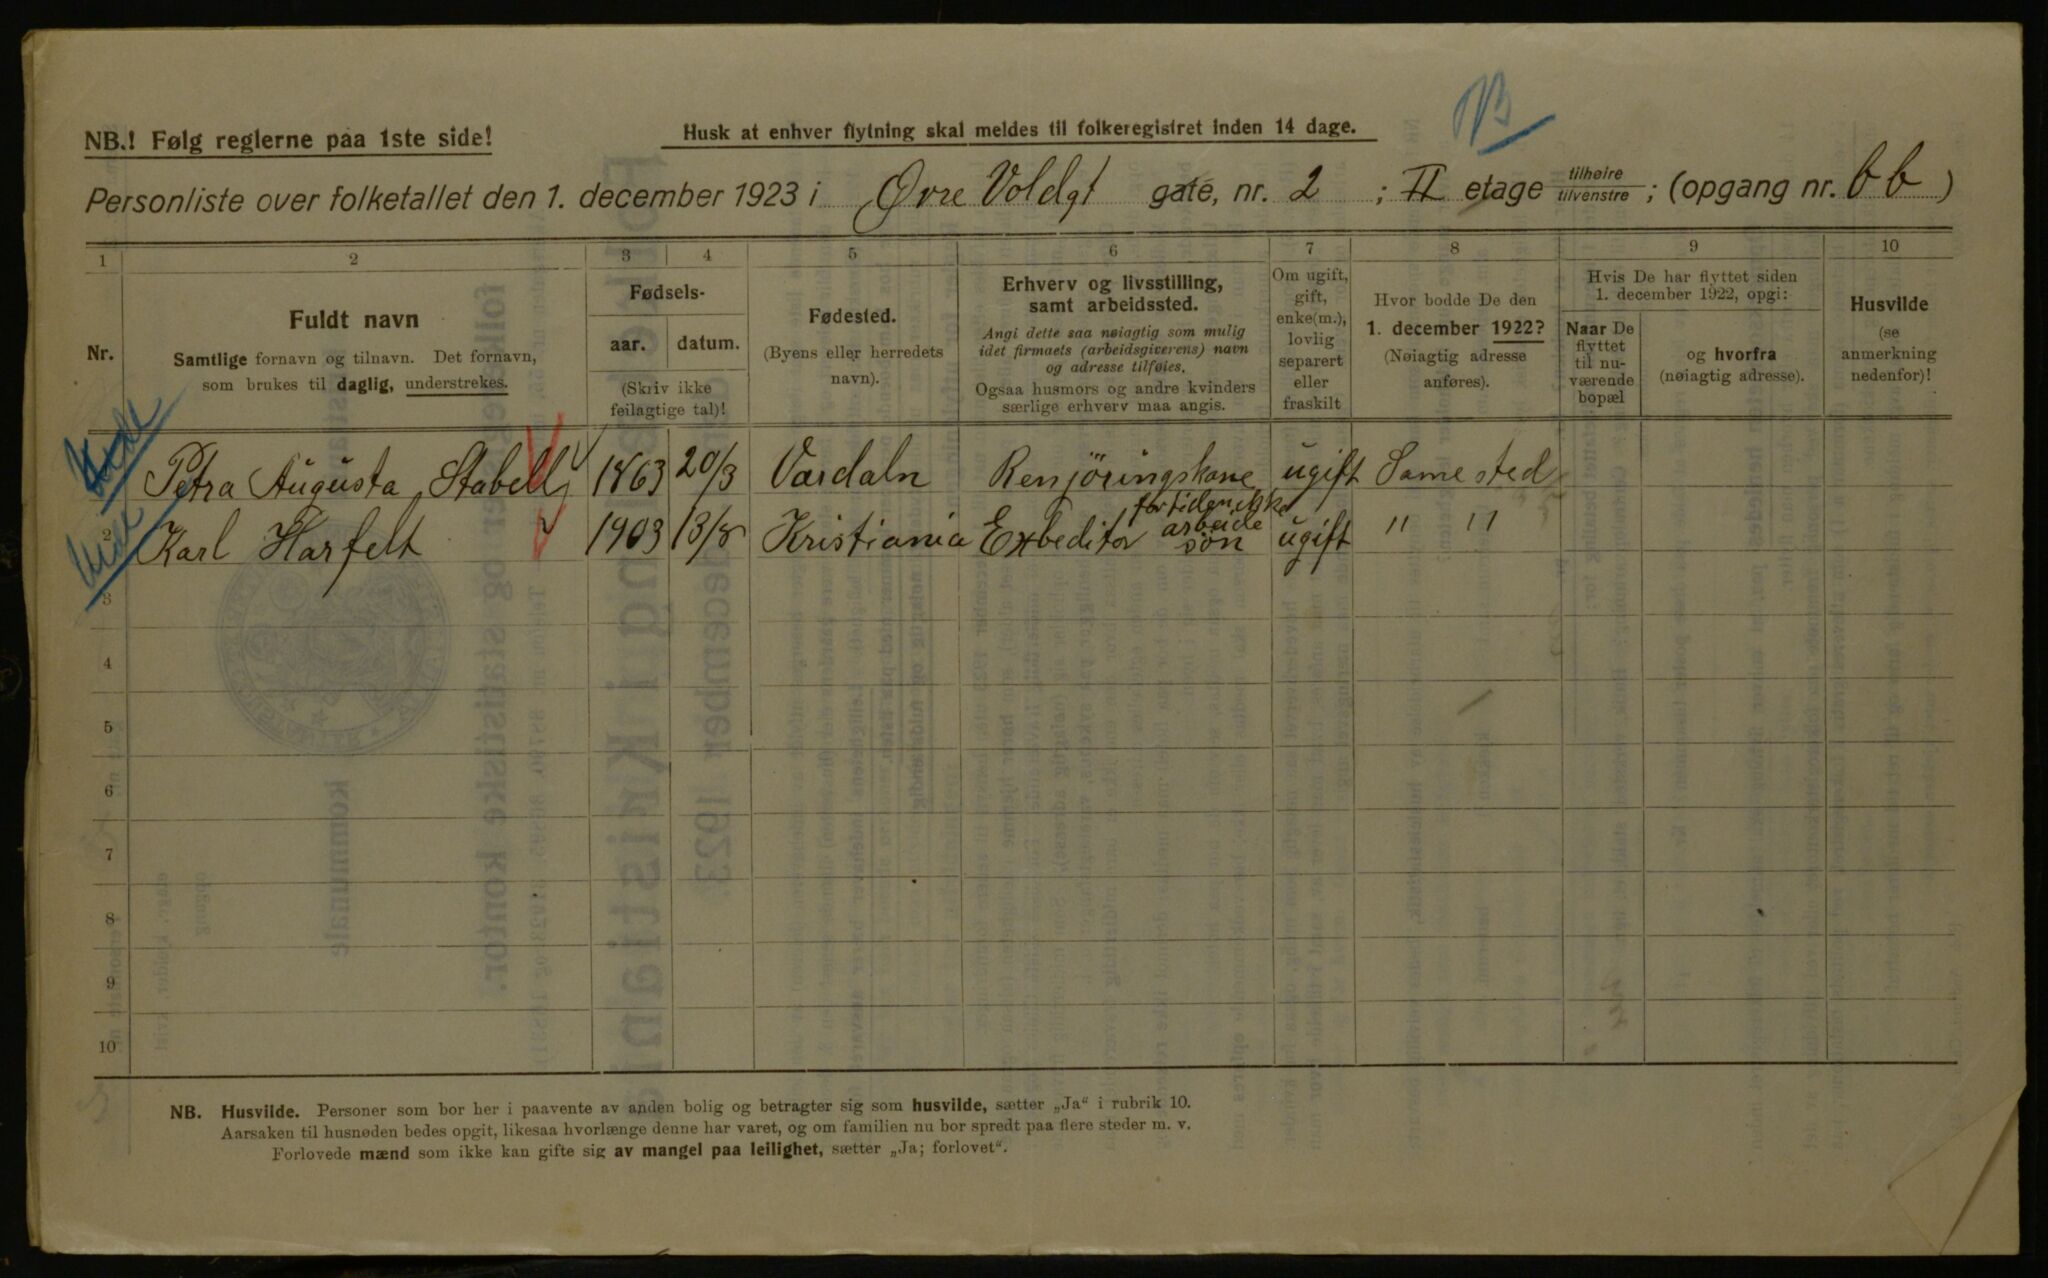 NB.! Følg reglerne paa 1ste side!
Husk at enhver flytning skal meldes til folkeregistret inden 14 dage.
Personliste over folketallet den 1. december 1923 i Øvre Voldgt gate, nr. 2 ; II etage tilhøire tilvenstre ; (opgang nr. bb )
1 2 3 4 5 6 7 8 9 10
Nr.
Fuldt navn
Samtlige fornavn og tilnavn. Det fornavn,
som brukes til daglig, understrekes.
Fødsels-
aar. datum.
(Skriv ikke
feilagtige tal)!
Fødested.
(Byens eller herredets
navn).
Erhverv og livsstilling,
samt arbeidssted.
Angi dette saa nøiagtig som mulig
idet firmaets (arbeidsgiverens) navn
og adresse tilføies.
Ogsaa husmors og andre kvinders
særlige erhverv maa angis.
Om ugift,
gift,
enke(m.),
lovlig
separert
eller
fraskilt
Hvor bodde De den
1. december 1922?
(Nøiagtig adresse
anføres).
Hvis De har flyttet siden
1. december 1922, opgi:
Naar De
flyttet
til nu-
værende
bopæl
og hvorfra
(nøiagtig adresse).
Husvilde
(se
anmerkning
nedenfor)!
Petra Augusta Stabell 1863 20/3 Værdaln Renjöringskone ugift Same sted
for tiden ikke
arbeide
2 Karl Harfelt 1903 13/8 Kristiania Exbeditør søn ugift " "
3
4
5
6
7
8
9
10
NB. Husvilde. Personer som bor her i paavente av anden bolig og betragter sig som husvilde, sætter „Ja" i rubrik 10.
Aarsaken til husnøden bedes opgit, likesaa hvorlænge denne har varet, og om familien nu bor spredt paa flere steder m. v.
Forlovede mænd som ikke kan gifte sig av mangel paa leilighet, sætter „Ja; forlovet".